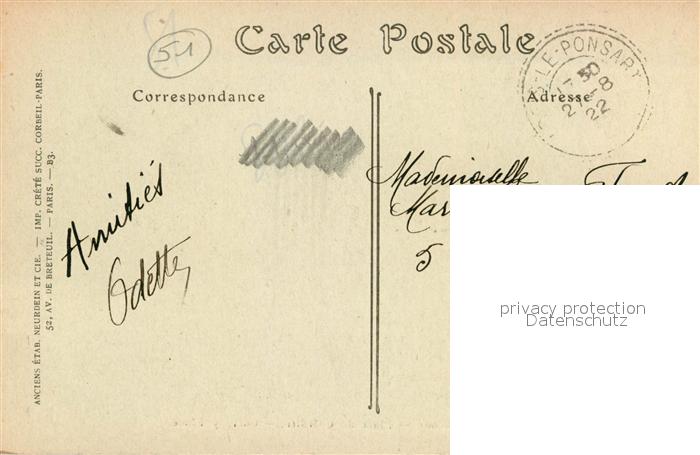 51
Carte Postale
Correspondance
Adresse
LE-PONSART
Mademoiselle
Mar
5
Amitiés
Odette
ANCIENS ÉTAB. NEURDEIN ET CIE. — IMP. CRÉTÉ SUCC. CORBEIL-PARIS.
52, AV. DE BRETEUIL. — PARIS. — B3.
privacy protection
Datenschutz